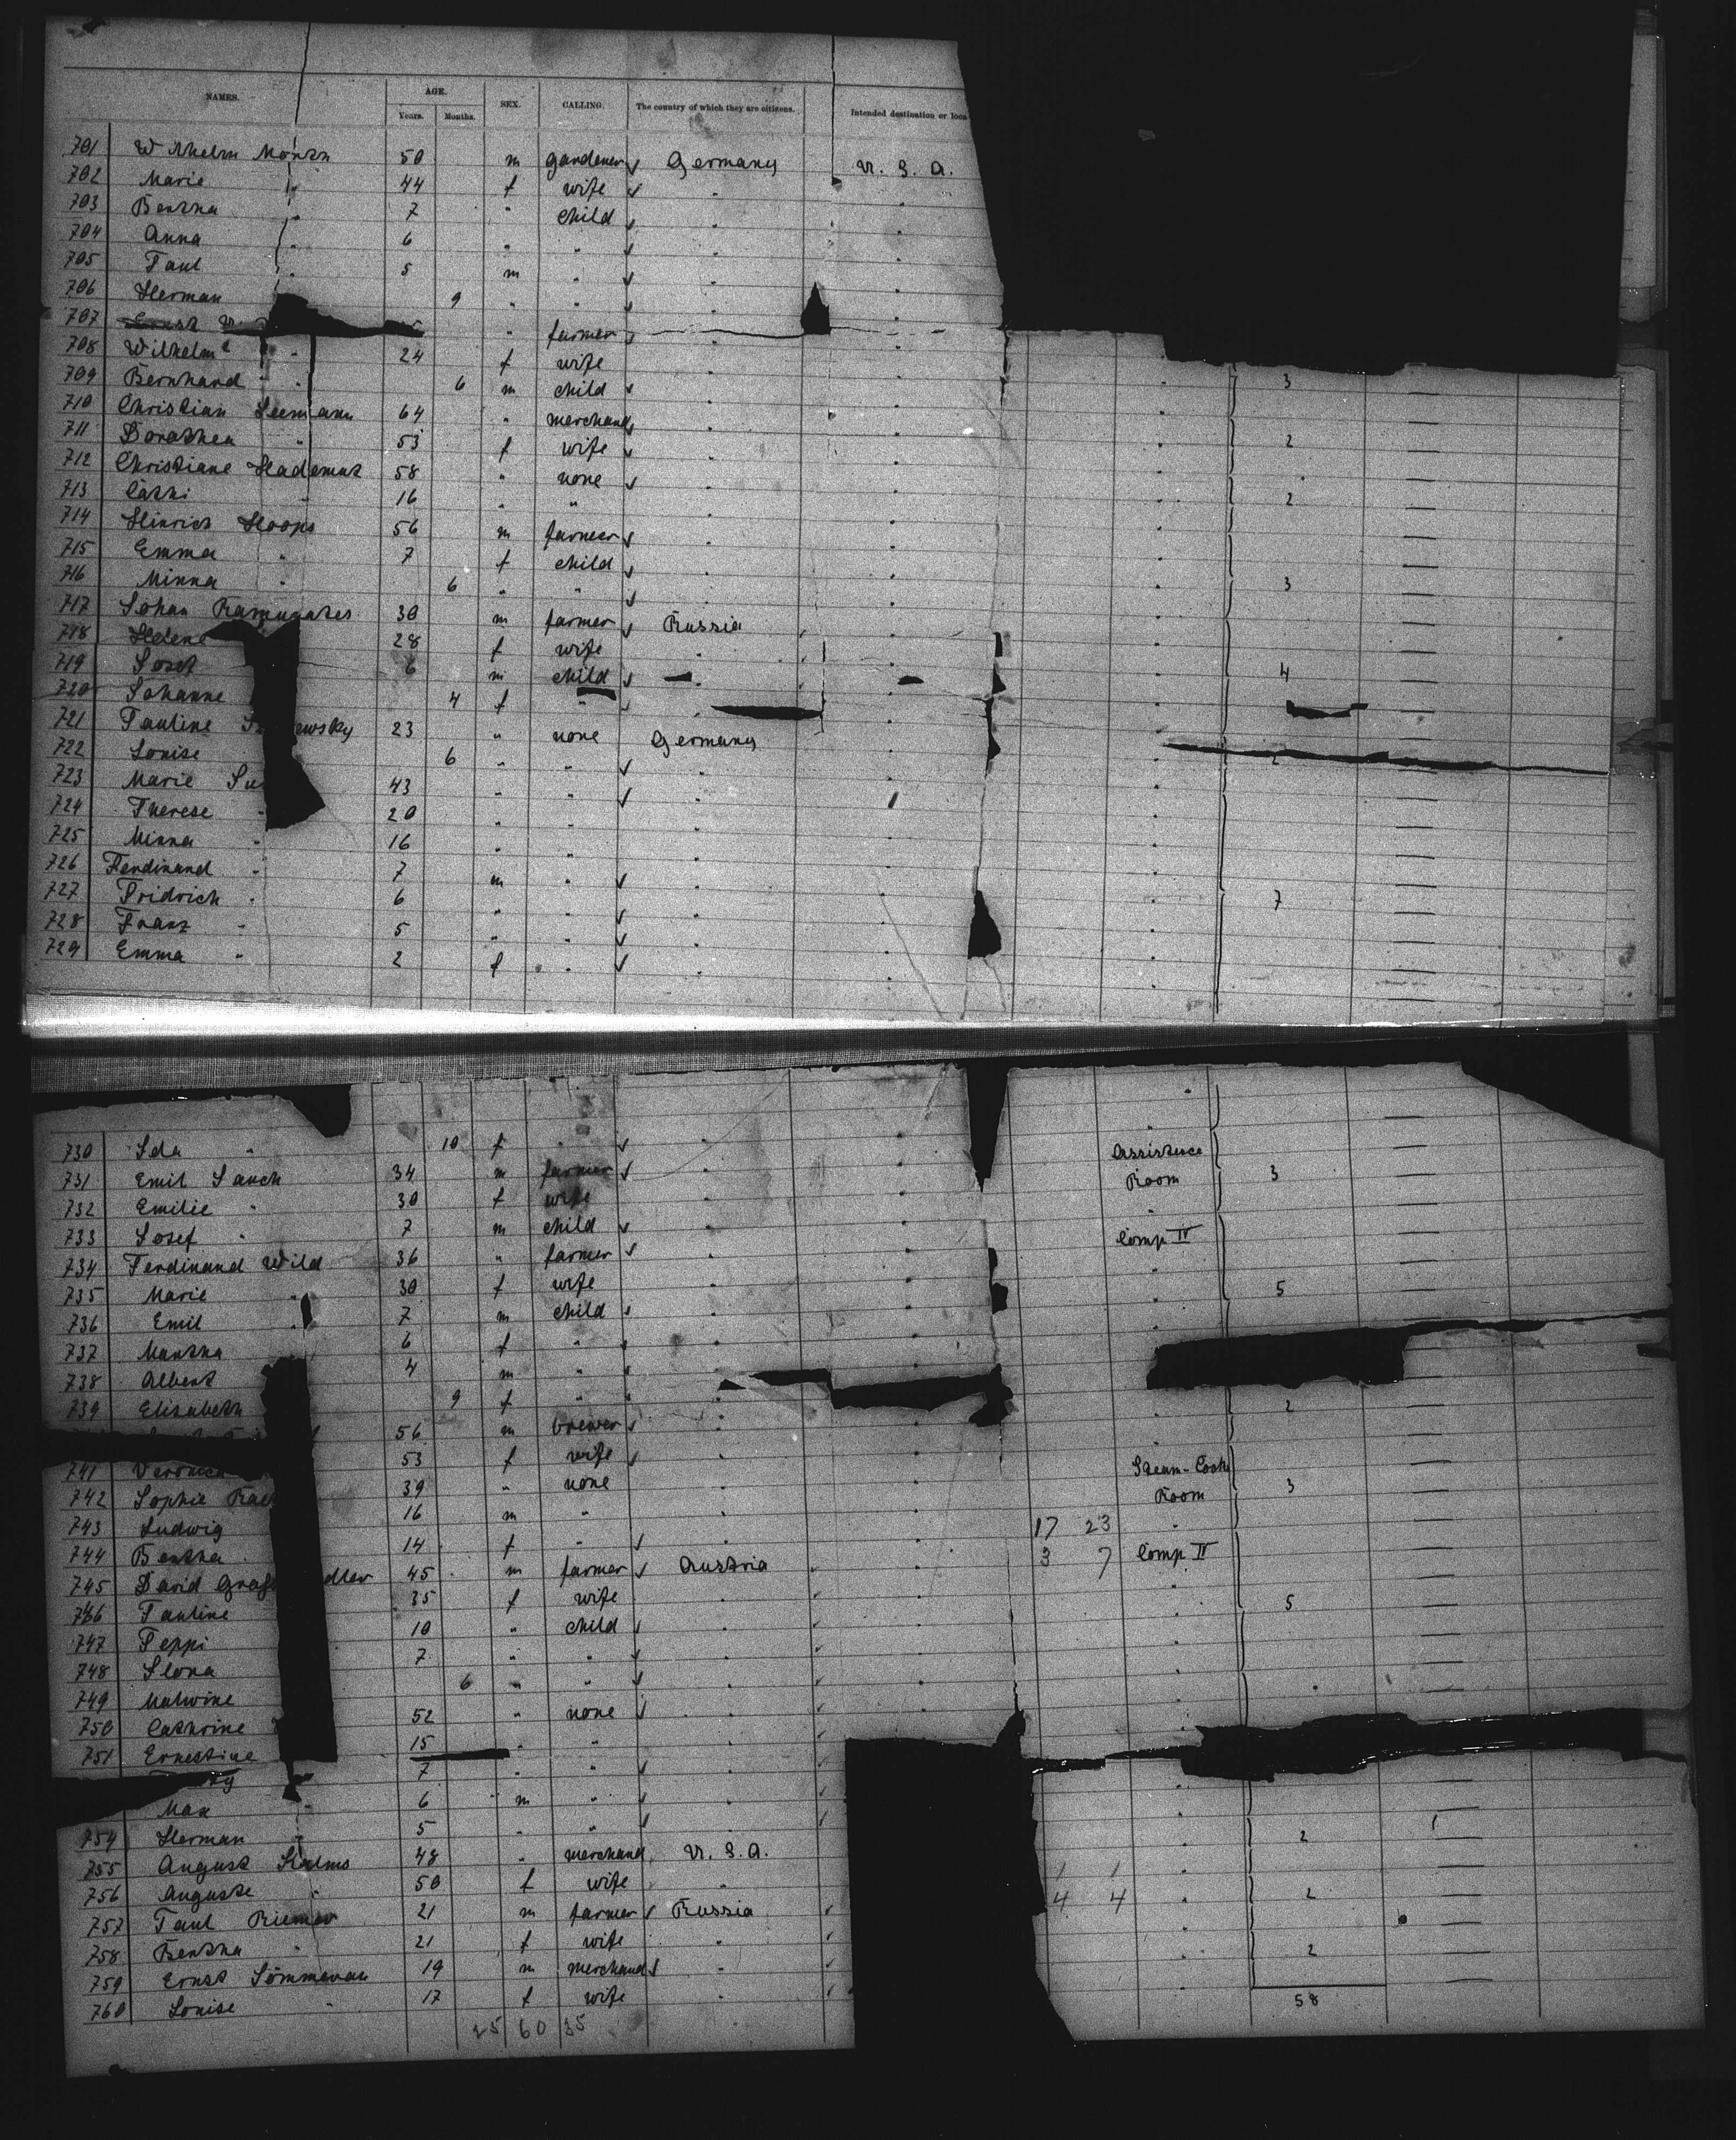 NAMES. AGE. SEX. CALLING. The country of which they are citizens. Intended destination or loca
Years. Months.
701 Wilhelm 50 m gardener Germany U. S. A.
702 Marie " 44 f wife " "
703 Bertha " 7 " child " "
704 Anna " 6 " " " "
705 Paul " 5 m " " "
706 Herman 9 " " " "
707 Ernst " farmer " "
708 Wilhelm " 24 f wife " "
709 Bernhard " 6 m child " " " 3
710 Christian Seemann 64 " merchand " " "
711 Dorathea " 53 f wife " " " 2
712 Christiane Hademat 58 " none " " "
713 Cathi " 16 " " " " " 2
714 Hinrich Hoops 56 m farmer " " "
715 Emma " 7 f child " " "
716 Minna " 6 " " " " " 3
717 Johan 30 m farmer Russia " "
718 Helene 28 f wife " " "
719 Josef 6 m child " " " 4
720 Johanne 4 f " " "
721 Pauline ewsky 23 " none Germany " "
722 Louise 6 " " " " " 2
723 Marie 43 " " " " "
724 Therese " 20 " " " " "
725 Minna " 16 " " " " "
726 Ferdinand " 7 m " " " "
727 Fridrich " 6 " " " " " 7
728 Franz " 5 " " " " "
729 Emma " 2 f " " " "
730 Ida " 10 f " " " Assistence
731 Emil Janch 34 m farmer " " Room 3
732 Emilie " 30 f wife " " "
733 Josef " 7 m child " " Comp IV
734 Ferdinand Wild 36 " farmer " " "
735 Marie " 30 f wife " " " 5
736 Emil " 7 m child " "
737 Martha 6 f " " "
738 Albert 4 m " "
739 Elisabeth 9 f " " " 2
56 m brewer " " "
741 Veronica 53 f wife " " Steam-Cook
742 Sophie 39 " none " " Room 3
743 Ludwig 16 m " " " 17 23 "
744 Bertha 14 f " " " 3 7 Comp II
745 David dler 45 m farmer Austria " "
746 Pauline 35 f wife " " " 5
747 Peppi 10 " child " " "
748 Ilona 7 " " " " "
749 Malwine 6 " " " " "
750 Cathrine 52 " none " " "
751 Ernestine 15 " " "
7 " " " "
Max " 6 m " " "
754 Herman " 5 " " " 2 1
755 August Halms 48 " merchand U. S. A. 1 1 "
756 Auguste " 50 f wife " 4 4 " 2
757 Paul Riemer 21 m farmer Russia "
758 Bertha " 21 f wife " " 2
759 Ernst 19 m merchand "
760 Louise " 17 f wife " 58
25 60 35